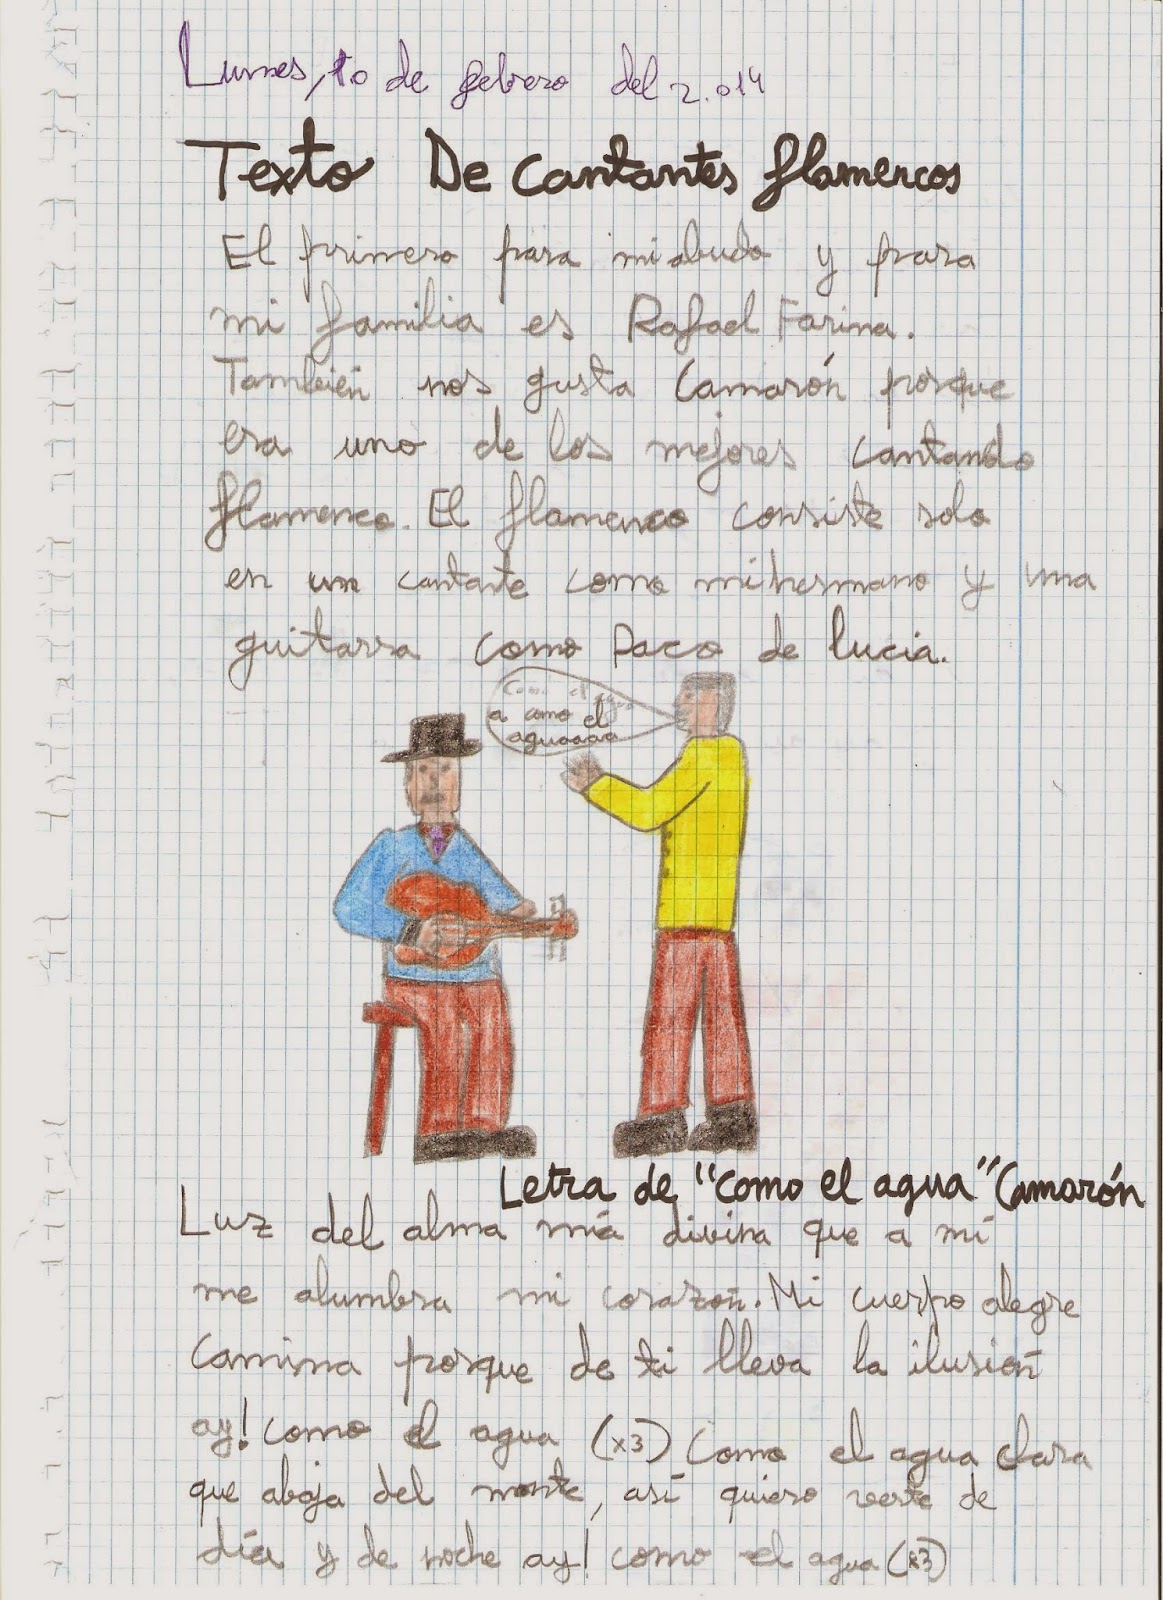 Lunes, 10 de febrero del 2.014
Texto De cantantes flamencos
El primero para mi abuelo y para
mi familia es Rafael Farina.
También nos gusta Camarón porque
era uno de los mejores cantando
flamenco. El flamenco consiste solo
en un cantante como mi hermano y una
guitarra como Paco de lucia.
Como el agua
a como el
aguaaaaa
Letra de "como el agua" Camarón
Luz del alma mía divina que a mí
me alumbra mi corazón. Mi cuerpo alegre
camina porque de ti lleva la ilusión
ay! como el agua (x3) Como el agua clara
que abaja del monte, así quiero verte de
día y de noche ay! como el agua (x3)